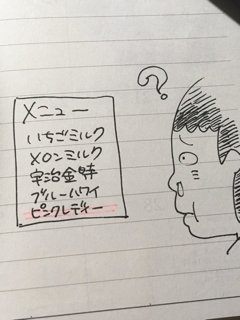 ?
メニュー
いちごミルク
メロンミルク
宇治金時
ブルーハワイ
ピンクレディー